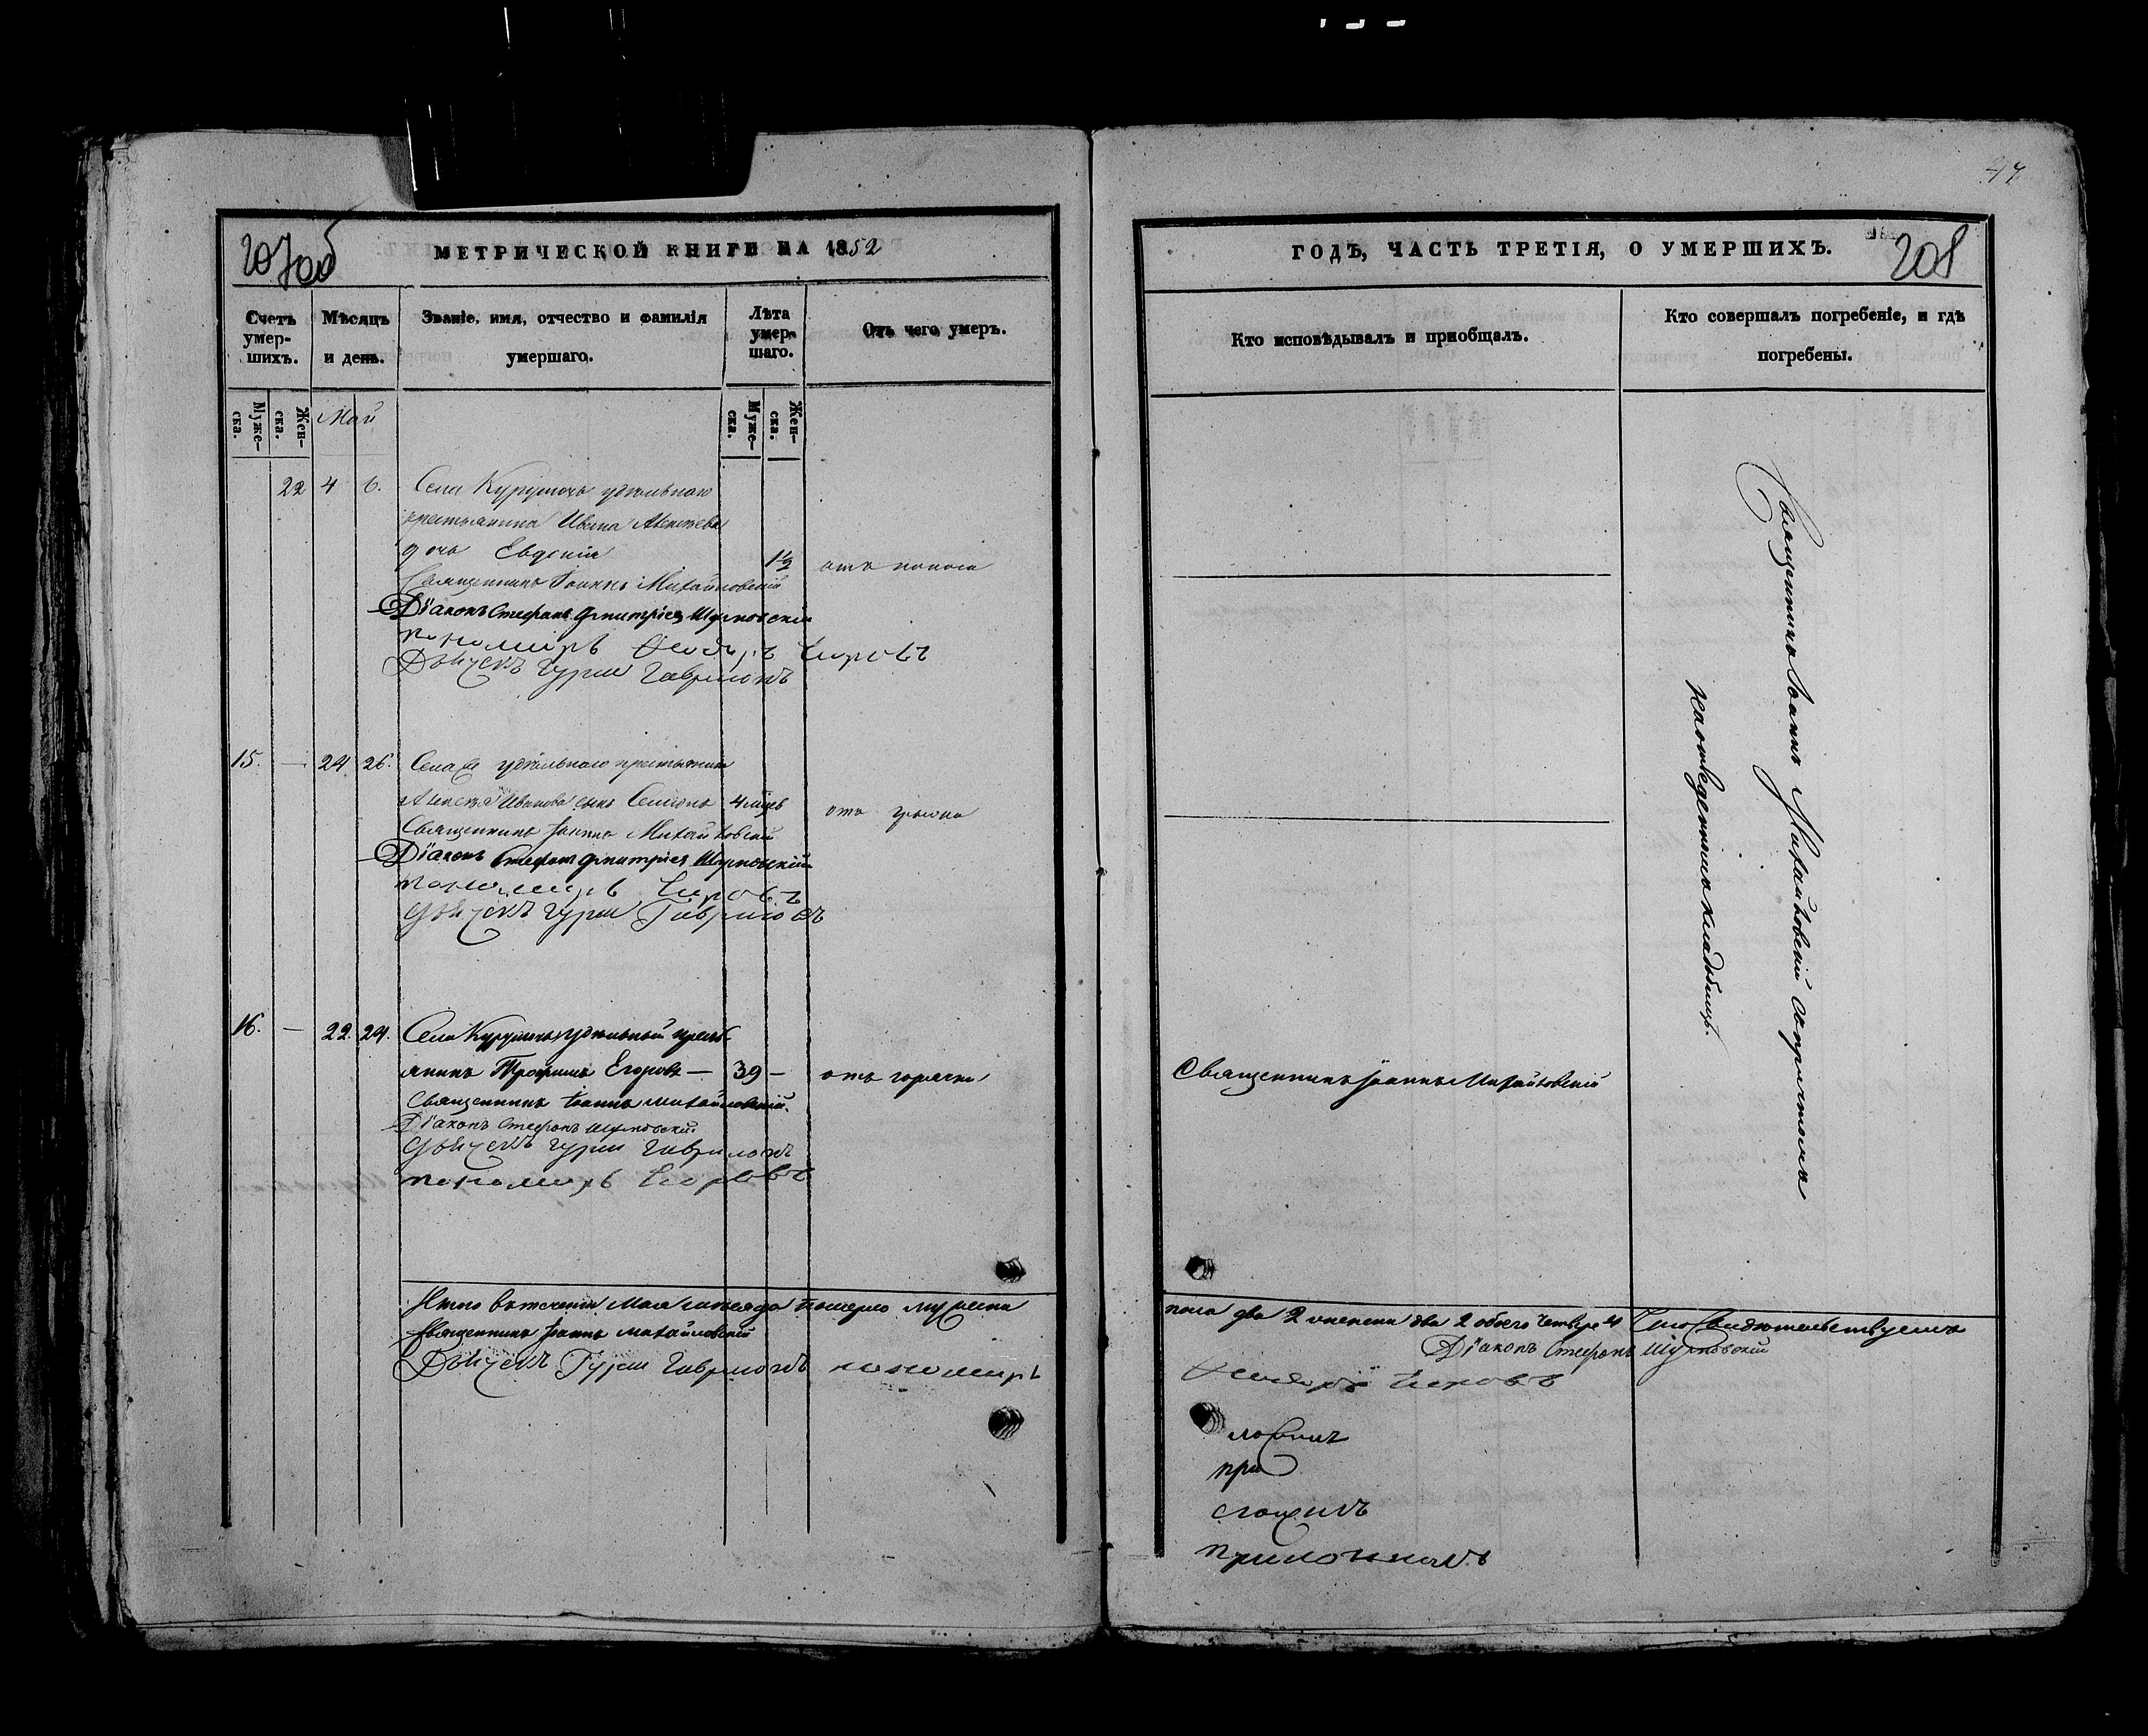 207об
МЕТРИЧЕСКОЙ КНИГИ НА 1852
Счетъ умер-шихъ.
Мѣсяцъ и день.
Званіе, имя, отчество и фамилія умершаго.
Лѣта умер-шаго.
Отъ чего умеръ.
Муже-ска.
Жен-ска.
Май
Муже-ска.
Жен-ска.
22 4 6. Села удѣльнаго
крестьянина Ивана Алексѣева
дочь Евдокія 1½ отъ поноса
Священникъ Іоаннъ Михайловскій
Діаконъ Стефанъ Дмитріев
пономарь Егоровъ
Дьячекъ Гурій Гавриловъ
15. — 24. 26. Села удѣльнаго крестьянина
Алексѣя Иванова сынъ Семіонъ 4 мцъ отъ грыжи
Священникъ Іоаннъ Михайловскій
Діаконъ Стефанъ Дмитріев
пономарь Егоровъ
Дьячекъ Гурій Гавриловъ
16. — 22. 24. Села удѣльный кресть
янинъ Трофимъ Егоровъ — 39 — отъ горячки
Священникъ Іоаннъ Михайловскій.
Діаконъ Стефанъ
Дьячекъ Гурій Гавриловъ
пономарь Егоровъ
Итого въ теченіи Мая мѣсяца померло мужеска
Священникъ Іоаннъ Михайловскій
Дьячекъ Гурій Гавриловъ пономарь
47
ГОДЪ, ЧАСТЬ ТРЕТІЯ, О УМЕРШИХЪ.
208
Кто исповѣдывалъ и пріобщалъ.
Кто совершалъ погребеніе, и гдѣ погребены.
Священникъ Іоаннъ Михайловскій съ причтомъ
на отведенномъ кладбищѣ.
Священникъ Іоаннъ Михайловскій
пола два 2 женска два 2 обоего четыре 4 Что свидѣтельствуемъ
Діаконъ Стефанъ
Егоровъ
при